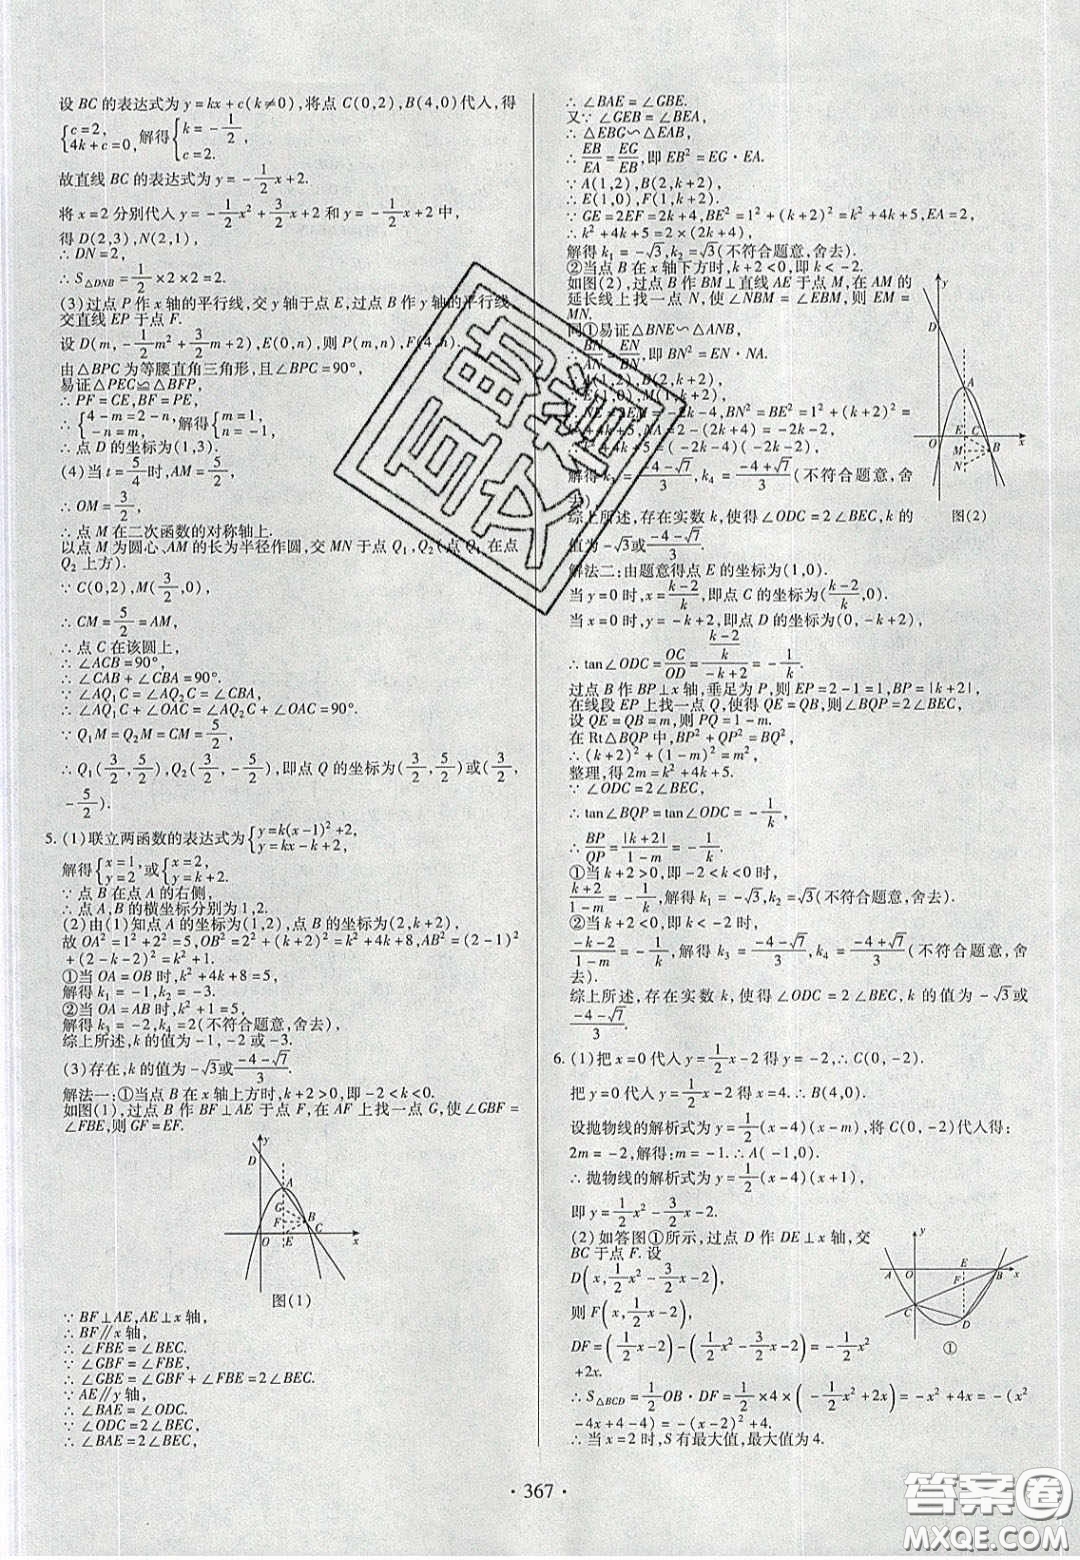 设 BC 的表达式为 y=kx+c(k≠0),将点 C(0,2),B(4,0)代入,得
{c=2, 4k+c=0, 解得{k=-1/2, c=2.
故直线 BC 的表达式为 y=-1/2x+2.
将 x=2 分别代入 y=-1/2x²+3/2x+2 和 y=-1/2x+2 中,
得 D(2,3),N(2,1),
∴ DN=2,
∴ S△DNB=1/2×2×2=2.
(3)过点 P 作 x 轴的平行线,交 y 轴于点 E,过点 B 作 y 轴的平行线,
交直线 EP 于点 F.
设 D(m,-1/2m²+3/2m+2),E(0,n),则 P(m,n),F(4,n).
由△BPC 为等腰直角三角形,且∠BPC=90°,
易证△PEC≌△BFP,
∴ PF=CE,BF=PE,
∴ {4-m=2-n, -n=m, 解得{m=1, n=-1.
∴ 点 D 的坐标为(1,3).
(4)当 t=5/4时,AM=5/2,
∴ OM=3/2,
∴ 点 M 在二次函数的对称轴上.
以点 M 为圆心、AM 的长为半径作圆,交 MN 于点 Q₁,Q₂(点 Q₁ 在点
Q₂ 上方).
∵ C(0,2),M(3/2,0),
∴ CM=5/2=AM,
∴ 点 C 在该圆上,
∴ ∠ACB=90°,
∴ ∠CAB+∠CBA=90°.
∴ ∠AQ₁C=∠AQ₂C=∠CBA,
∴ ∠AQ₁C+∠OAC=∠AQ₂C+∠OAC=90°.
∵ Q₁M=Q₂M=CM=5/2,
∴ Q₁(3/2,5/2),Q₂(3/2,-5/2),即点 Q 的坐标为(3/2,5/2)或(3/2,
-5/2).
5.(1)联立两函数的表达式为{y=k(x-1)²+2, y=kx-k+2,
解得{x=1, y=2,或{x=2, y=k+2.
∵ 点 B 在点 A 的右侧,
∴ 点 A,B 的横坐标分别为 1,2.
(2)由(1)知点 A 的坐标为(1,2),点 B 的坐标为(2,k+2),
故 OA²=1²+2²=5,OB²=2²+(k+2)²=k²+4k+8,AB²=(2-1)²
+(2-k-2)²=k²+1.
①当 OA=OB 时,k²+4k+8=5,
解得 k₁=-1,k₂=-3.
②当 OA=AB 时,k²+1=5,
解得 k₃=-2,k₄=2(不符合题意,舍去),
综上所述,k 的值为-1,-2 或-3.
(3)存在,k 的值为-√3或(-4-√7)/3.
解法一:①当点 B 在 x 轴上方时,k+2>0,即-2<k<0.
如图(1),过点 B 作 BF⊥AE 于点 F,在 AF 上找一点 G,使∠GBF=
∠FBE,则 GF=EF.
y
D
A
G
F
B
C
O
E
x
图(1)
∵ BF⊥AE,AE⊥x 轴,
∴ BF∥x 轴,
∴ ∠FBE=∠BEC.
∵ ∠GBF=∠FBE,
∴ ∠GBE=∠GBF+∠FBE=2∠BEC.
∵ AE∥y 轴,
∴ ∠BAE=∠ODC.
∵ ∠ODC=2∠BEC,
∴ ∠BAE=2∠BEC,
∴ ∠BAE=∠GBE.
又∵ ∠GEB=∠BEA,
∴ △EBG∽△EAB,
∴ EB/EA=EG/EB,即 EB²=EG·EA.
∵ A(1,2),B(2,k+2),
∴ E(1,0),F(1,k+2).
∵ GE=2EF=2k+4,BE²=1²+(k+2)²=k²+4k+5,EA=2,
∴ k²+4k+5=2×(2k+4),
解得 k₁=-√3,k₂=√3(不符合题意,舍去).
②当点 B 在 x 轴下方时,k+2<0,即 k<-2.
如图(2),过点 B 作 BM⊥直线 AE 于点 M,在 AM 的
延长线上找一点 N,使∠NBM=∠EBM,则 EM=
MN.
同①易证△BNE∽△ANB,
∴ BN/AN=EN/BN,即 BN²=EN·AN.
∵ A(1,2),B(2,k+2),
∴ E(1,0),M(1,k+2).
∴ NE=2EM=-2k-4,BN²=BE²=1²+(k+2)²=
k²+4k+5,NA=2-2(k+2)=-2k-2,
∴ k²+4k+5=(-2k-4)(-2k-2),
解得 k₃=(-4-√7)/3,k₄=(-4+√7)/3(不符合题意,舍
去).
综上所述,存在实数 k,使得∠ODC=2∠BEC,k 的
值为-√3或(-4-√7)/3.
y
D
A
O
E
C
x
M
B
N
图(2)
解法二:由题意得点 E 的坐标为(1,0).
当 y=0 时,x=(k-2)/k,即点 C 的坐标为((k-2)/k,0).
当 x=0 时,y=-k+2,即点 D 的坐标为(0,-k+2),
∴ tan∠ODC=OC/OD=((k-2)/k)/(-k+2)=-1/k.
过点 B 作 BP⊥x 轴,垂足为 P,则 EP=2-1=1,BP=|k+2|,
在线段 EP 上找一点 Q,使得 QE=QB,则∠BQP=2∠BEC,
设 QE=QB=m,则 PQ=1-m.
在 Rt△BQP 中,BP²+QP²=BQ²,
∴ (k+2)²+(1-m)²=m²,
整理,得 2m=k²+4k+5.
∵ ∠ODC=2∠BEC,
∴ tan∠BQP=tan∠ODC=-1/k,
∴ BP/QP=|k+2|/(1-m)=-1/k.
①当 k+2>0,即-2<k<0 时,
(k+2)/(1-m)=-1/k,解得 k₁=-√3,k₂=√3(不符合题意,舍去).
②当 k+2<0,即 k<-2 时,
(-k-2)/(1-m)=-1/k,解得 k₃=(-4-√7)/3,k₄=(-4+√7)/3(不符合题意,舍
去).
综上所述,存在实数 k,使得∠ODC=2∠BEC,k 的值为-√3或
(-4-√7)/3.
6.(1)把 x=0 代入 y=1/2x-2 得 y=-2,∴ C(0,-2).
把 y=0 代入 y=1/2x-2 得 x=4.∴ B(4,0).
设抛物线的解析式为 y=1/2(x-4)(x-m),将 C(0,-2)代入得:
2m=-2,解得:m=-1.∴ A(-1,0).
∴ 抛物线的解析式为 y=1/2(x-4)(x+1),
即 y=1/2x²-3/2x-2.
(2)如答图①所示,过点 D 作 DE⊥x 轴,交
BC 于点 F.设
D(x,1/2x²-3/2x-2)
则 F(x,1/2x-2)
DF=(1/2x-2)-(1/2x²-3/2x-2)=-1/2x²
+2x.
y
A
O
E
B
x
F
C
D
①
∴ S△BCD=1/2OB·DF=1/2×4×(-1/2x²+2x)=-x²+4x=-(x²
-4x+4-4)=-(x-2)²+4.
∴ 当 x=2 时,S 有最大值,最大值为 4.
· 367 ·
互助文档
答案卷
MXQE.COM